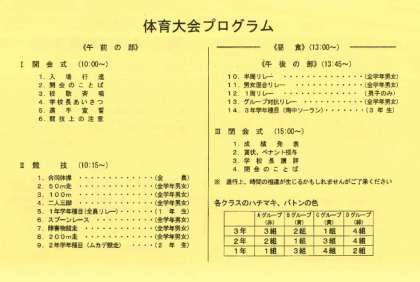 体育大会プログラム
《午前の部》
Ⅰ 開会式 (10:00～)
1. 入場行進
2. 開会のことば
3. 校歌斉唱
4. 学校長あいさつ
5. 選手宣誓
6. 競技上の注意
Ⅱ 競技 (10:15～)
1. 合同体操 ・・・・・・・・・・(全員)
2. 50m走 ・・・・・・・・・・(全学年男女)
3. 100m ・・・・・・・・・・(全学年男女)
4. 二人三脚 ・・・・・・・・・・(全学年男女)
5. 1年学年種目(全員リレー) ・・・・(1年生)
6. スプーンレース ・・・・・・・(全学年男女)
7. 障害物競走 ・・・・・・・・・(全学年男女)
8. 200m走 ・・・・・・・・・(全学年男女)
9. 2年学年種目(ムカデ競走) ・・・・(2年生)
《昼食》(13:00～)
《午後の部》(13:45～)
10. 半周リレー ・・・・・・・・・(全学年男女)
11. 男女混合リレー ・・・・・・・(全学年男女)
12. 1周リレー ・・・・・・・・・(男子のみ)
13. グループ対抗リレー ・・・・・(全学年男女)
14. 3年学年種目(南中ソーラン) ・・・(3年生)
Ⅲ 閉会式 (15:00～)
1. 成績発表
2. 賞状、ペナント授与
3. 学校長講評
4. 閉会のことば
※ 進行上、時間の相違が生じるかもしれませんがご了承ください
各クラスのハチマキ、バトンの色
Aグループ Bグループ Cグループ Dグループ
(赤) (青) (黄) (緑)
3年 3組 2組 1組 4組
2年 2組 1組 3組 4組
1年 1組 3組 2組 4組